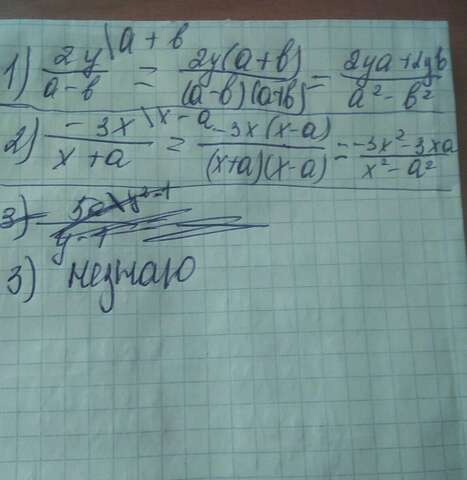 1) 2y\a + b / a - b = 2y(a + b) / (a-b)(a+b) = 2ya + 2yb / a² - b²
2) -3x\x - a / x + a = -3x(x-a) / (x+a)(x-a) = -3x² - 3xa / x² - a²
3) 5a\y²-1 / y-1
3) незнаю